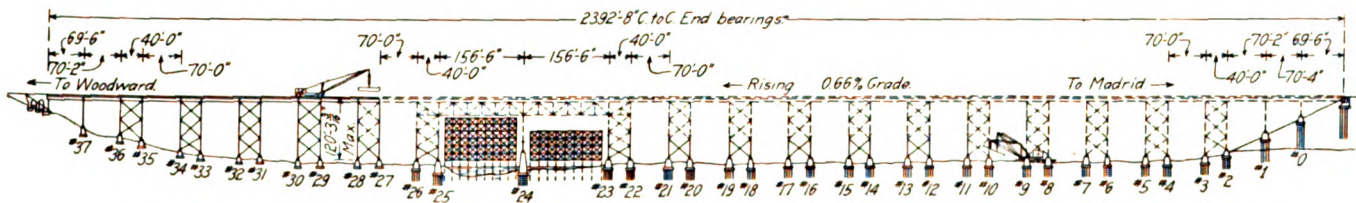 2392'-8" C. to C. End bearings.
69'-6" 40'-0" 70'-0" 156'-6" 156'-6" 40'-0" 70'-0" 70'-2" 69'-6"
70'-2" 70'-0" 40'-0" 70'-0" 40'-0" 70'-4"
← To Woodward. ← Rising 0.66% Grade. To Madrid →
120'-3⅜" Max.
#37 #36 #35 #34 #33 #32 #31 #30 #29 #28 #27 #26 #25 #24 #23 #22 #21 #20 #19 #18 #17 #16 #15 #14 #13 #12 #11 #10 #9 #8 #7 #6 #5 #4 #3 #2 #1 #0